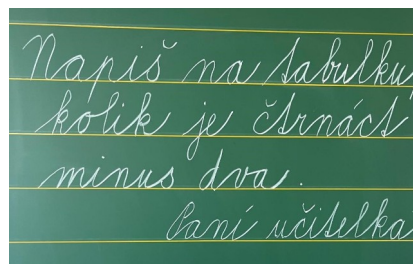 Napiš na tabulku
kolik je čtrnáct
minus dva.
Paní učitelka